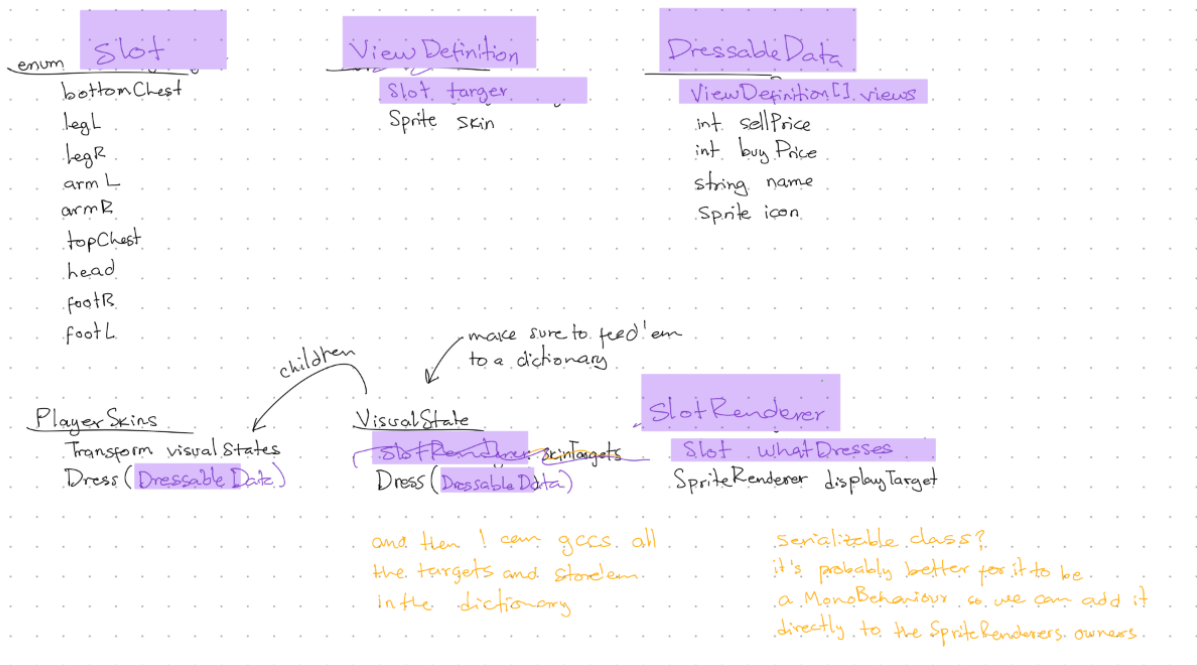 enum Slot
bottomChest
legL
legR
armL
armR
topChest
head
footR
footL
ViewDefinition
Slot targer
Sprite skin
DressableData
ViewDefinition[] views
int sellPrice
int buyPrice
string name
Sprite icon
children
make sure to feed'em
to a dictionary
PlayerSkins
Transform visualStates
Dress(DressableData)
VisualState
SlotRenderer skinTargets
Dress(DressableData)
SlotRenderer
Slot whatDresses
SpriteRenderer displayTarget
and then I can gccs all
the targets and stor'em
in the dictionary
serializable class?
it's probably better for it to be
a MonoBehaviour so we can add it
directly to the SpriteRenderers owners